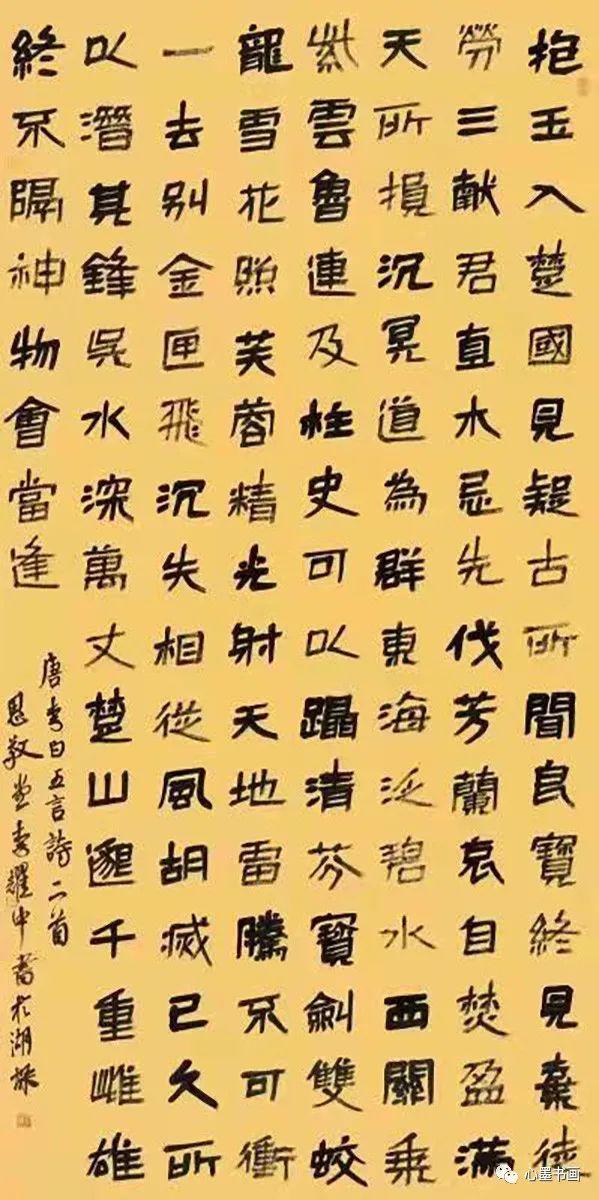 抱玉入楚國見疑古所聞良寶終見棄徒
勞三献君直木忌先伐芳蘭哀自焚盈滿
天所損沉冥道為群東海泛碧水西關乘
紫雲魯連及柱史可以躡清芬寶劍雙蛟
龍雪花照芙蓉精光射天地雷騰不可衝
一去别金匣飛沉失相從風胡滅已久所
以潛其鋒吳水深萬丈楚山邈千重雌雄
終不隔神物會當逢
唐李白五言詩二首
堂李耀中書於湖
心墨书画